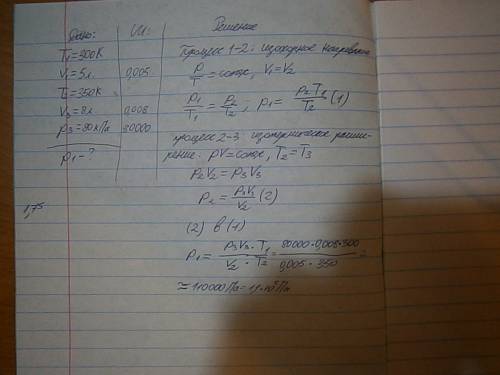 Дано:
СИ:
Решение
T₁=300К
V₁=5л
0,005
T₂=350К
V₃=8л
0,008
p₃=80кПа
80000
p₁-?
1,75
Процесс 1-2: изохорное нагревание
p/T = const, V₁=V₂
p₁/T₁ = p₂/T₂; p₁ = p₂T₁/T₂ (1)
процесс 2-3 изотермическое расши-
рение. pV=const, T₂=T₃
p₂V₂ = p₃V₃
p₂ = p₃V₃/V₂ (2)
(2) в (1)
p₁ = p₃V₃·T₁/V₂·T₂ = 80000·0,008·300/0,005·350 =
≈ 110000Па=1,1·10⁵Па